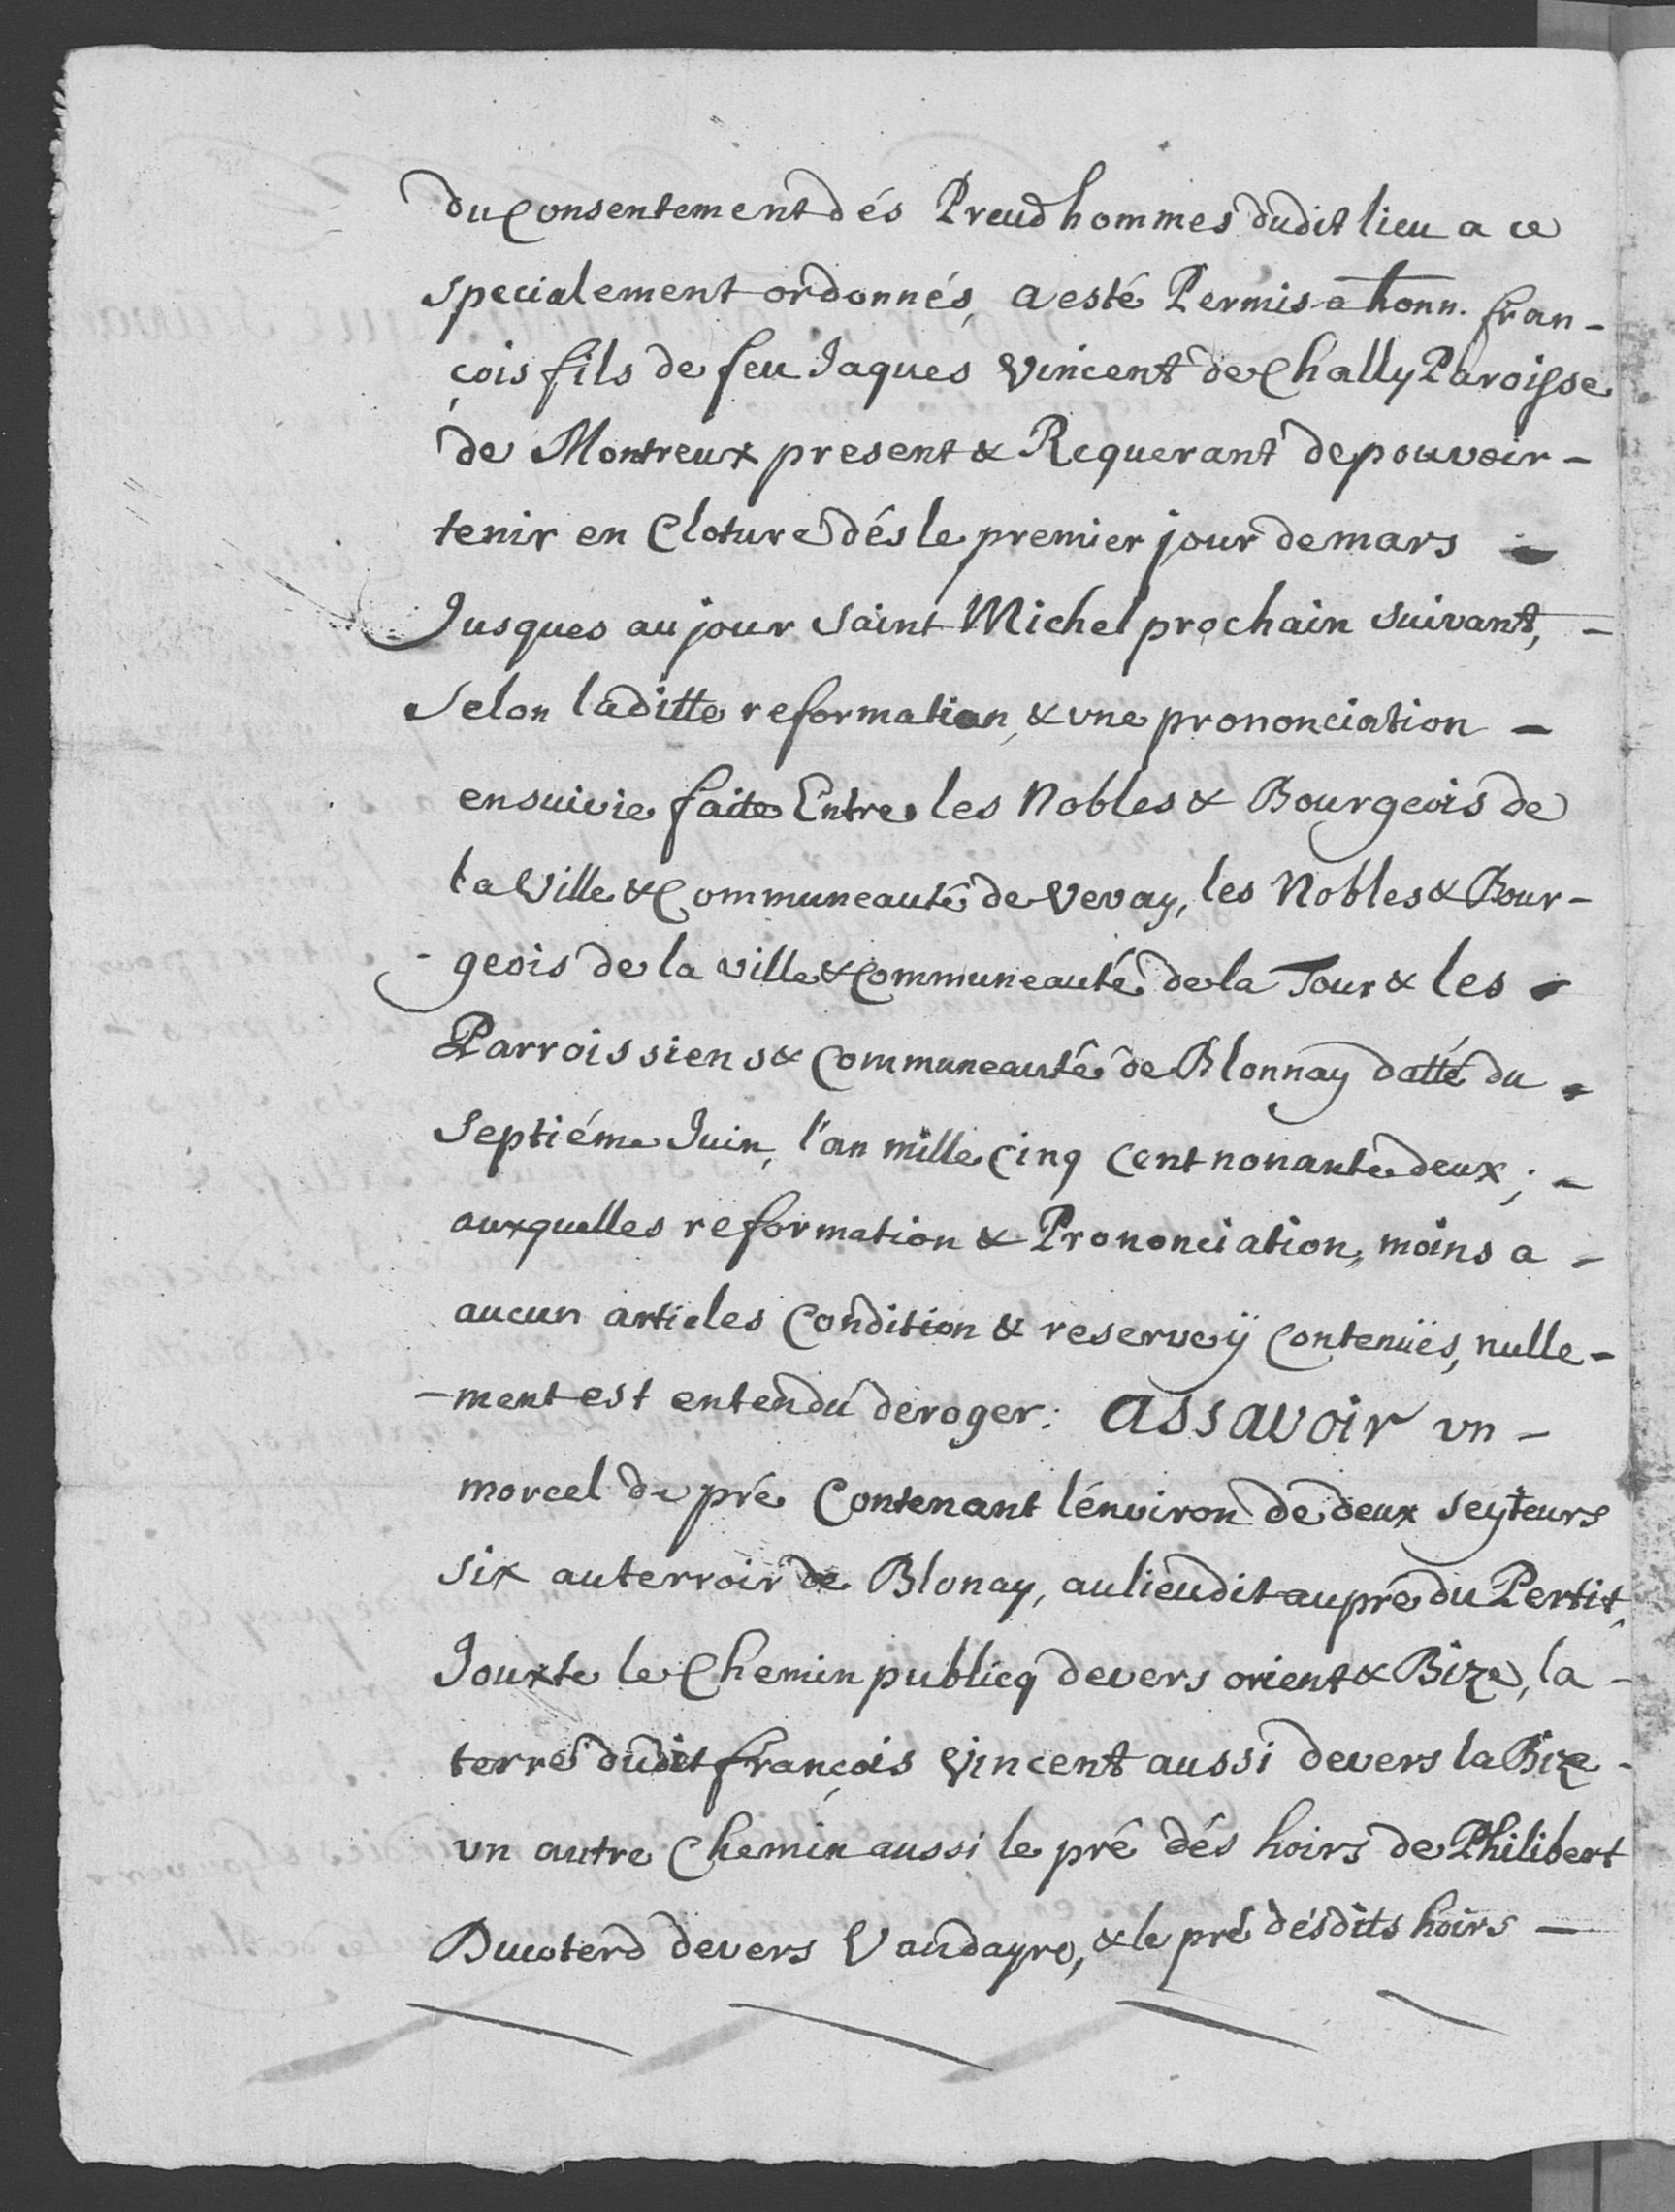 du Consentement dés Preudhommes dudit lieu a ce
specialement ordonnés, a esté Permis a honn. fran-
çois fils de feu Jaques Vincent de Chally Paroisse
de Montreux present & Requerant de pouvoir -
tenir en Cloture dés le premier jour de mars -
Jusques au jour saint Michel prochain suivant, -
Selon laditte reformation, & une prononciation -
ensuivie faite Entre les Nobles & Bourgeois de
la Ville & Communeauté de Vevay, les Nobles & Bour-
-geois de la ville & Communeauté de la Tour & les -
Parroissiens & Communeauté de Blonnay datté du -
Septiéme Juin, l'an mille Cinq Cent nonante deux; -
auxquelles reformation & Prononciation, moins a -
aucun articles Condition & reserve ÿ Contenües, nulle-
-ment est entendu deroger: ASSAVOIR vn -
morcel de pré Contenant l'énviron de deux seyteurs
six au terroir de Blonay, au lieu dit au pré du Pertit,
Jouxte le Chemin publicq devers orient & Bize, la -
terre dudit françois Vincent aussi devers la Bize -
vn autre Chemin aussi le pré dés hoirs de Philibert
Ducoterd devers Vaudayre, & le pré désdits hoirs -